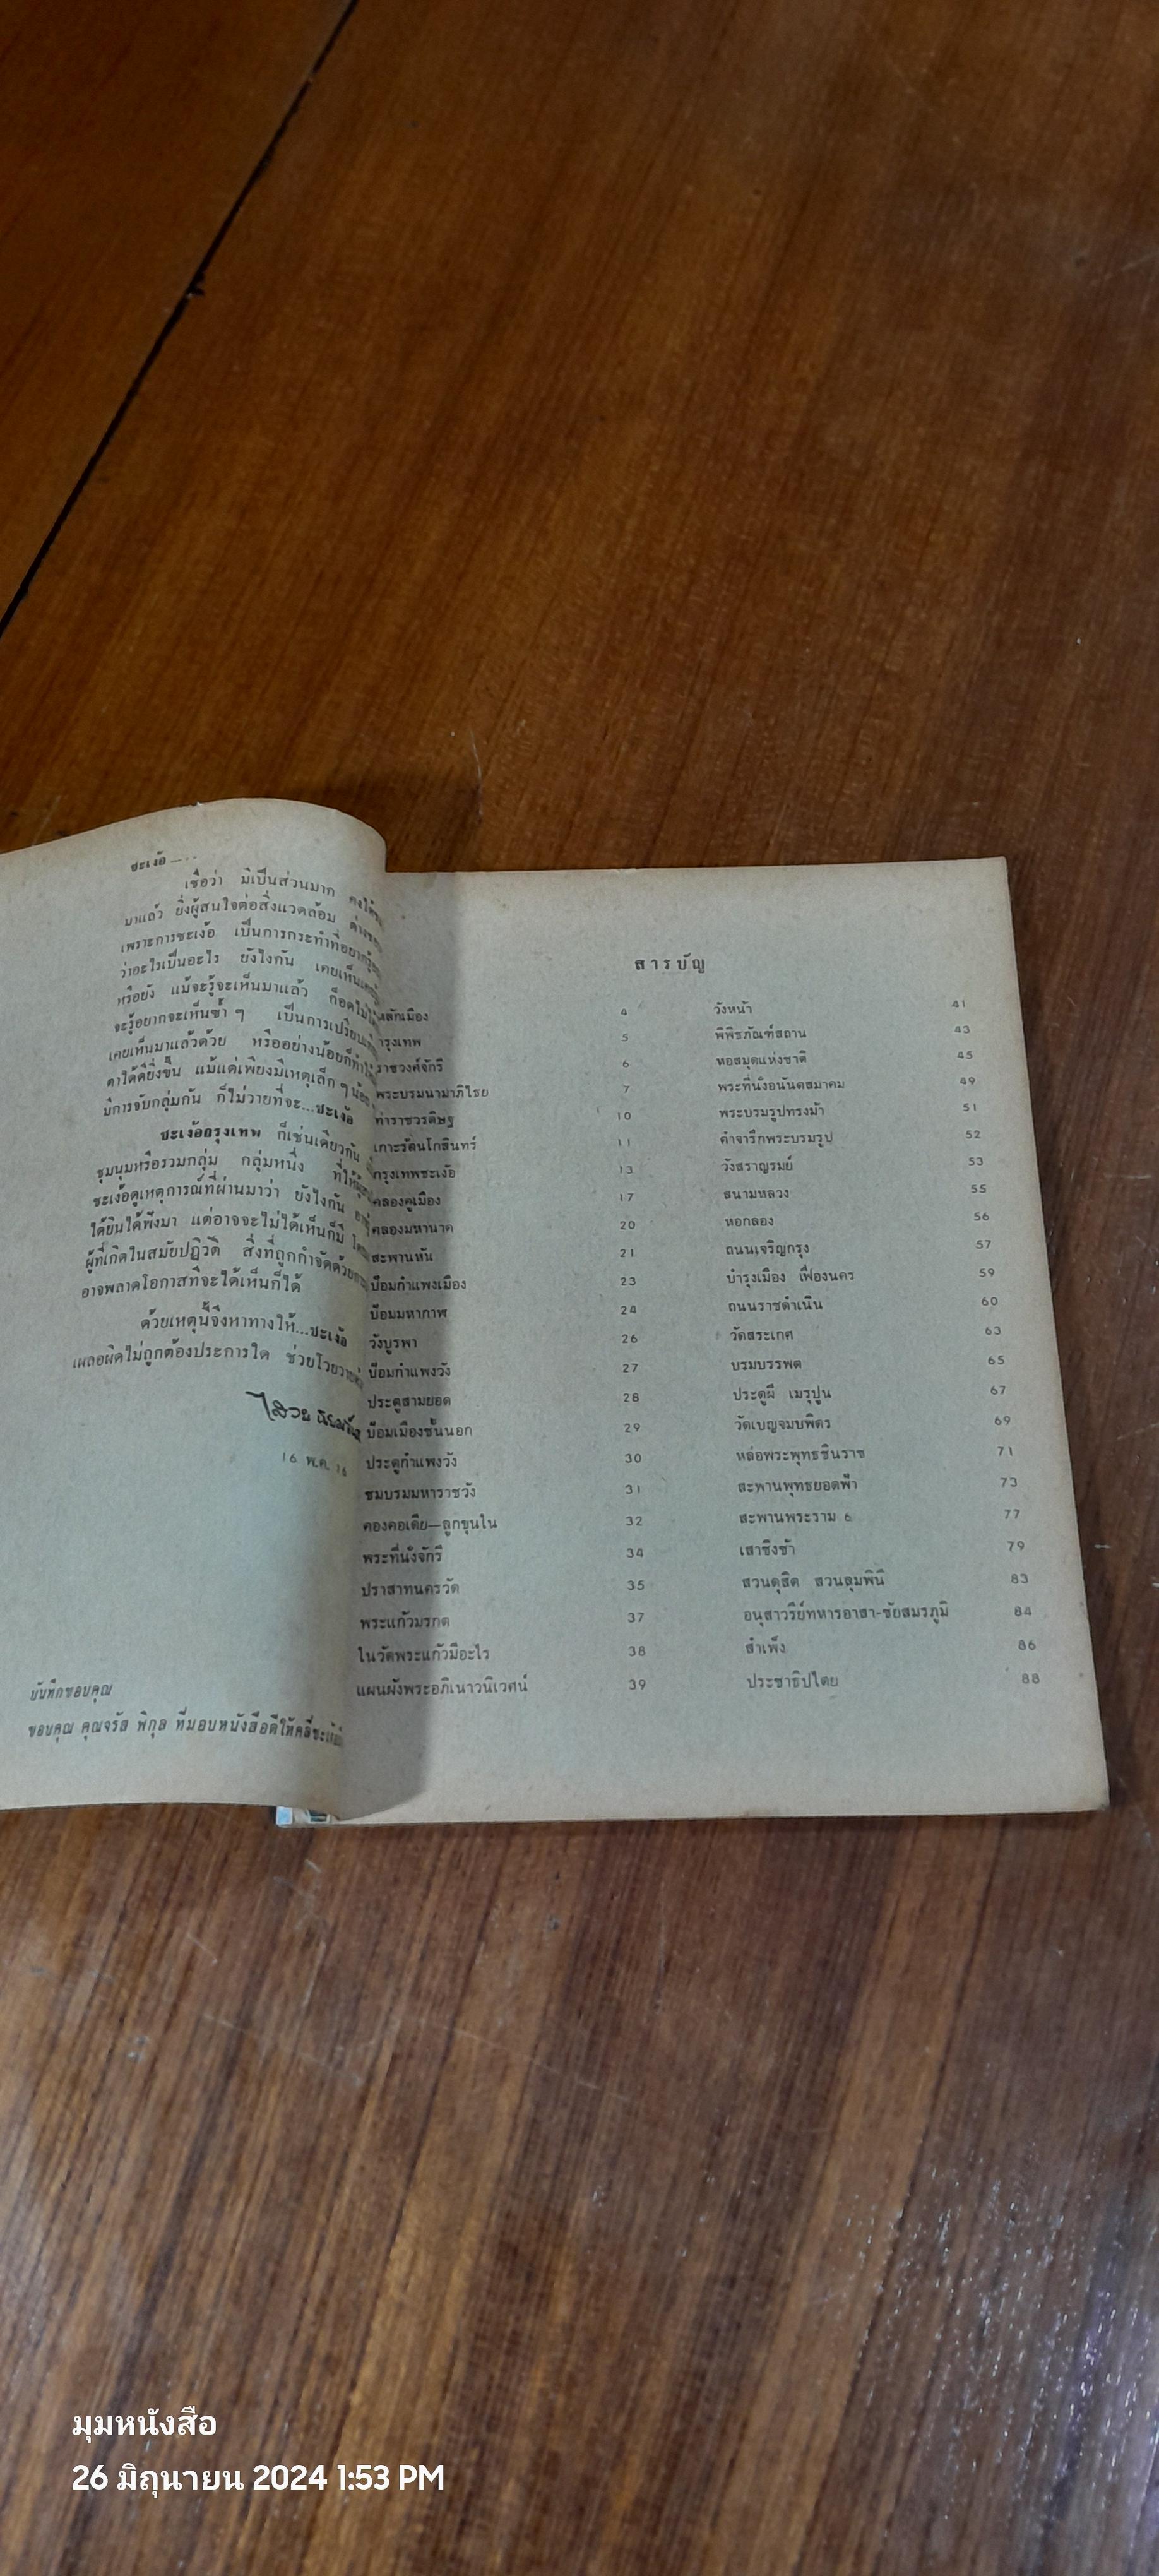 ชะเง้อ
เชื่อว่า มีเป็นส่วนมาก
มาแล้ว ยิ่งผู้สนใจต่อสิ่งแวดล้อม
เพราะการชะเง้อ เป็นการกระทำที่อยากรู้
ว่าอะไรเป็นอะไร ยังไงกัน เคยเห็น
หรือยัง แม้จะรู้จะเห็นมาแล้ว ก็อดไม่ได้
จะรู้อยากจะเห็นซ้ำ ๆ เป็นการเปรียบ
เคยเห็นมาแล้วด้วย หรืออย่างน้อยก็ทำให้
ตาได้ดียิ่งขึ้น แม้แต่เพียงมีเหตุเล็ก ๆ น้อย
มีการจับกลุ่มกัน ก็ไม่วายที่จะ...ชะเง้อ
ชะเง้อกรุงเทพ ก็เช่นเดียวกัน
ชุมนุมหรือรวมกลุ่ม กลุ่มหนึ่ง ที่ให้
ชะเง้อดูเหตุการณ์ที่ผ่านมาว่า ยังไงกัน
ได้ยินได้ฟังมา แต่อาจจะไม่ได้เห็นก็มี
ผู้ที่เกิดในสมัยปฏิวัติ สิ่งที่ถูกกำจัดด้วย
อาจพลาดโอกาสที่จะได้เห็นก็ได้
ด้วยเหตุนี้จึงหาทางให้...ชะเง้อ
เผลอผิดไม่ถูกต้องประการใด ช่วยโวยวาย
16 พ.ค. 16
บันทึกขอบคุณ
ขอบคุณ คุณจรัส พิกุล ที่มอบหนังสือดีให้คลี่ชะเง้อ
สารบัญ
หลักเมือง 4
กรุงเทพ 5
ราชวงศ์จักรี 6
พระบรมนามาภิไธย 7
ท่าราชวรดิษฐ 10
เกาะรัตนโกสินทร์ 11
กรุงเทพชะเง้อ 13
คลองคูเมือง 17
คลองมหานาค 20
สะพานหัน 21
ป้อมกำแพงเมือง 23
ป้อมมหากาฬ 24
วังบูรพา 26
ป้อมกำแพงวัง 27
ประตูสามยอด 28
ป้อมเมืองชั้นนอก 29
ประตูกำแพงวัง 30
ชมบรมมหาราชวัง 31
คองคอเดีย—ลูกขุนใน 32
พระที่นั่งจักรี 34
ปราสาทนครวัด 35
พระแก้วมรกต 37
ในวัดพระแก้วมีอะไร 38
แผนผังพระอภิเนาวนิเวศน์ 39
วังหน้า 41
พิพิธภัณฑ์สถาน 43
หอสมุดแห่งชาติ 45
พระที่นั่งอนันตสมาคม 49
พระบรมรูปทรงม้า 51
คำจารึกพระบรมรูป 52
วังสราญรมย์ 53
สนามหลวง 55
หอกลอง 56
ถนนเจริญกรุง 57
บำรุงเมือง เฟื่องนคร 59
ถนนราชดำเนิน 60
วัดสระเกศ 63
บรมบรรพต 65
ประตูผี เมรุปูน 67
วัดเบญจมบพิตร 69
หล่อพระพุทธชินราช 71
สะพานพุทธยอดฟ้า 73
สะพานพระราม 6 77
เสาชิงช้า 79
สวนดุสิต สวนลุมพินี 83
อนุสาวรีย์ทหารอาสา-ชัยสมรภูมิ 84
สำเพ็ง 86
ประชาธิปไตย 88
มุมหนังสือ
26 มิถุนายน 2024 1:53 PM